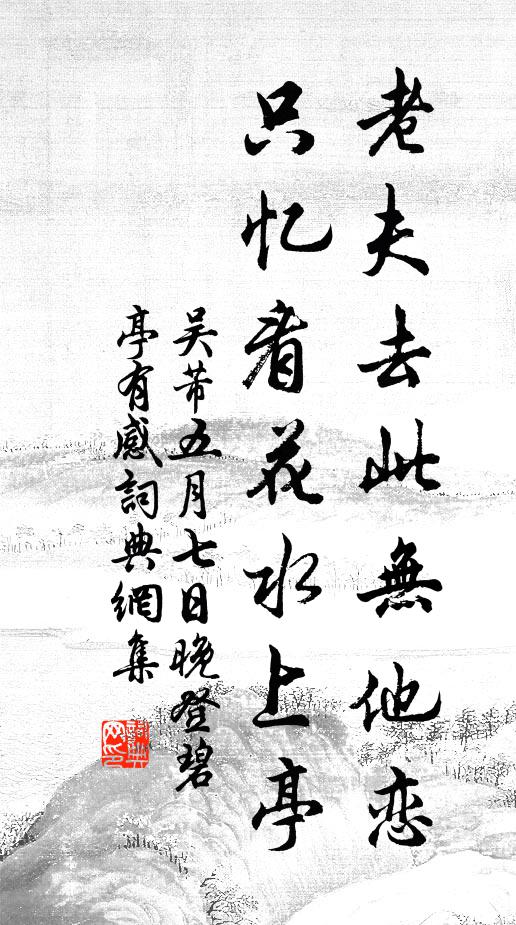 老夫去此無他恋
只忆看花水上亭
吴芾五月七日晚登碧
亭有感詞典網集